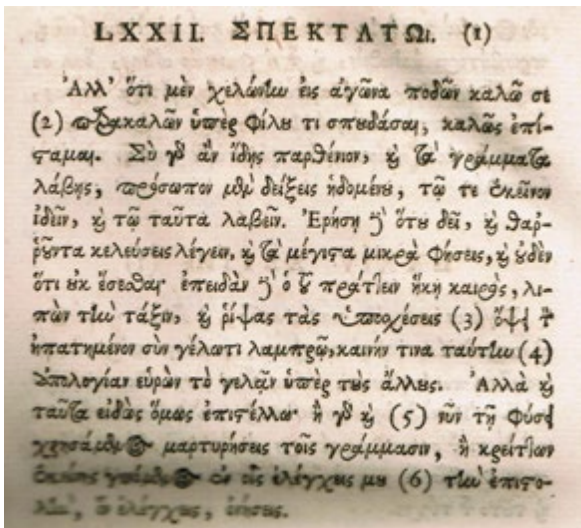 LXXII. ΣΠΕΚΤΑΤΩι. (1)
Ἀλλ' ὅτι μὲν χελώνην εἰς ἀγῶνα ποδῶν καλῶ σε
(2) παρακαλῶν ὑπὲρ φίλου τι σπουδάσαι, καλῶς ἐπί-
σταμαι. Σὺ γὰρ ἂν ἴδῃς παρθένιον, καὶ τὰ γράμματα
λάβῃς, πρόσωπον μὲν δείξεις ἡδομένου, τῷ τε ἐκεῖνον
ἰδεῖν, καὶ τῷ ταῦτα λαβεῖν. Ἐρήσῃ δ' ὅτου δεῖ, καὶ θαρ-
ῥοῦντα κελεύσεις λέγειν, καὶ τὰ μέγιστα μικρὰ φήσεις, καὶ οὐδὲν
ὅτι οὐκ ἔσεσθαι· ἐπειδὰν δ' ὁ τοῦ πράττειν ἥκῃ καιρὸς, λι-
πὼν τὴν τάξιν, καὶ ῥίψας τὰς ὑποσχέσεις (3) ὄψει τὸν
ἠπατημένον σὺν γέλωτι λαμπρῷ, καινήν τινα ταύτην (4)
ἀπολογίαν εὑρὼν τὸ γελᾷν ὑπὲρ τοὺς ἄλλους. Ἀλλὰ καὶ
ταῦτα εἰδὼς ὅμως ἐπιστέλλω· ἢ γὰρ καὶ (5) νῦν τῇ φύσει
χρησάμενος μαρτυρήσεις τοῖς γράμμασιν, ἢ κρείττων
ἐκείνης γενόμενος ἐν οἷς ἐλέγχεις μου (6) τὴν ἐπιστο-
λὴν, ἐλέγχεις,